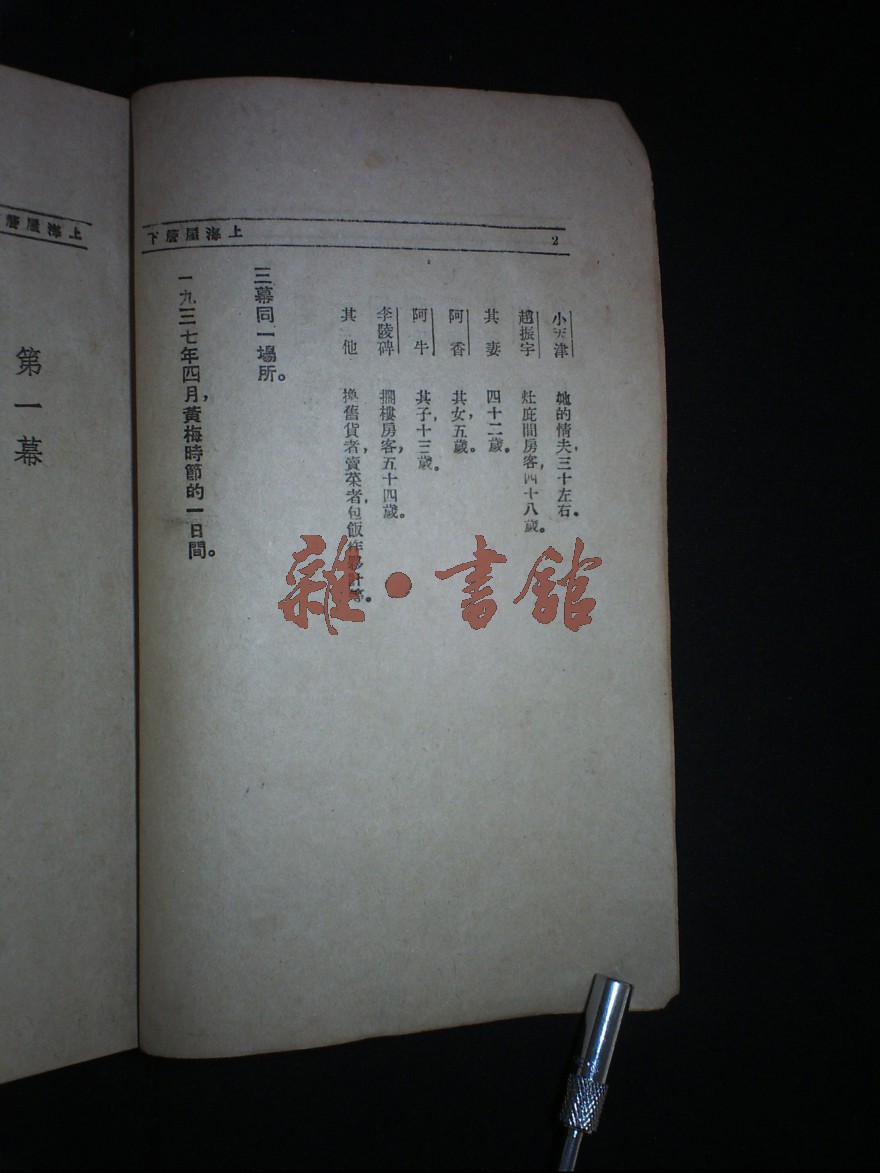 上海屋簷下 2
小天津 她的情夫，三十左右。
趙振宇 灶庇間房客，四十八歲。
其妻 四十二歲。
阿香 其女，五歲。
阿牛 其子，十三歲。
李陵碑 擱樓房客，五十四歲。
其他 換舊貨者，賣菜者，包飯作夥計等。
三幕同一場所。
一九三七年四月，黃梅時節的一日間。
上海屋簷
第一幕
雜·書館